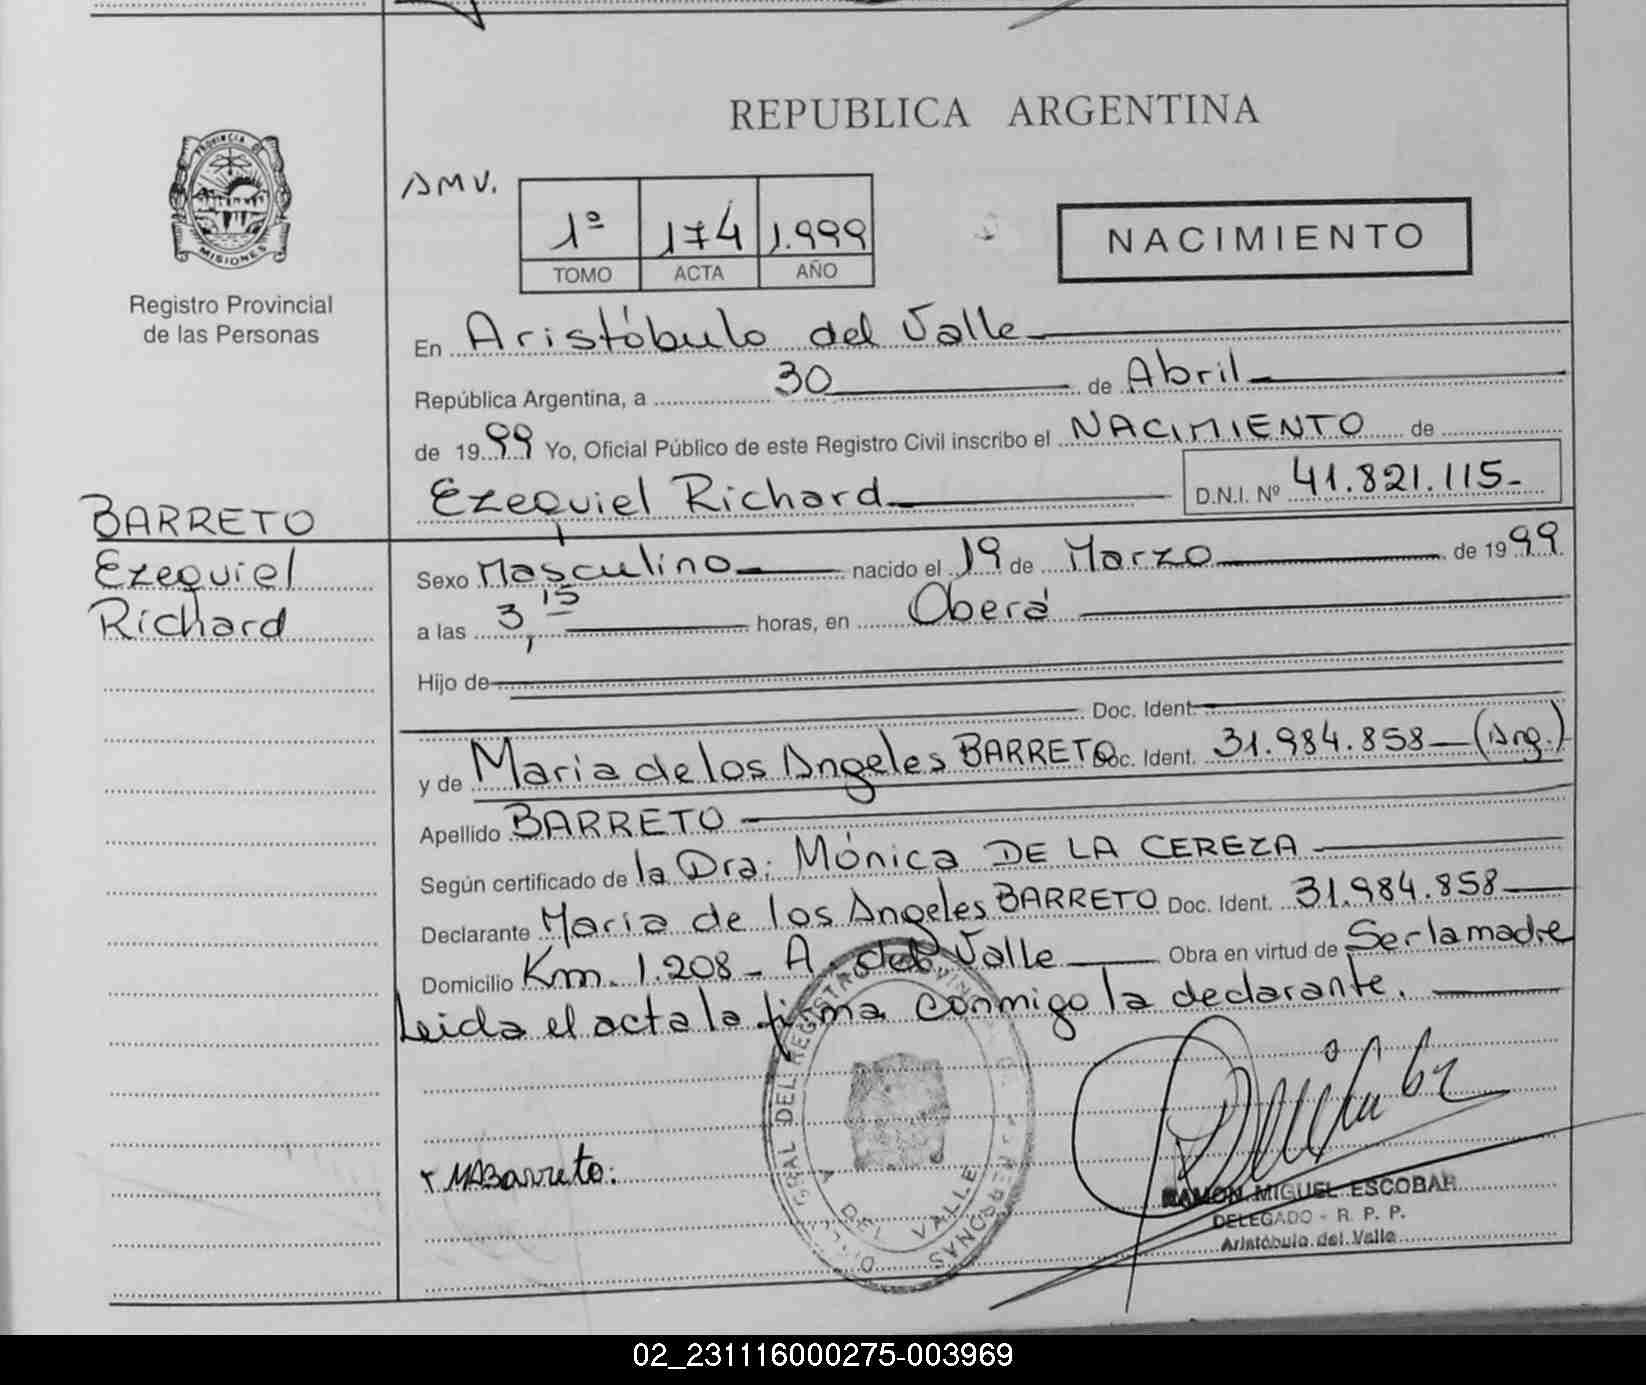 REPUBLICA ARGENTINA
PROVINCIA DE
MISIONES
Registro Provincial
de las Personas
AMV.
1º 174 1.999
TOMO ACTA AÑO
NACIMIENTO
En Aristóbulo del Valle
República Argentina, a 30 de Abril
de 1999 Yo, Oficial Público de este Registro Civil inscribo el NACIMIENTO de
Ezequiel Richard D.N.I. Nº 41.821.115-
BARRETO
Ezequiel
Richard
Sexo Masculino nacido el 19 de Marzo de 1999
a las 3,15 horas, en Oberá
Hijo de
Doc. Ident.
y de Maria de los Angeles BARRETO Doc. Ident. 31.984.858-(Arg.)
Apellido BARRETO
Según certificado de la Dra. Mónica DE LA CEREZA
Declarante Maria de los Angeles BARRETO Doc. Ident. 31.984.858-
Domicilio Km. 1.208- A. del Valle Obra en virtud de Ser la madre
Leida el acta la firma conmigo la declarante.
MABarreto.
GRAL DEL REGISTRO PROVINC PERSONAS
A DEL VALLE
RAMON MIGUEL ESCOBAR
DELEGADO - R. P. P.
Aristóbulo del Valle
02_231116000275-003969